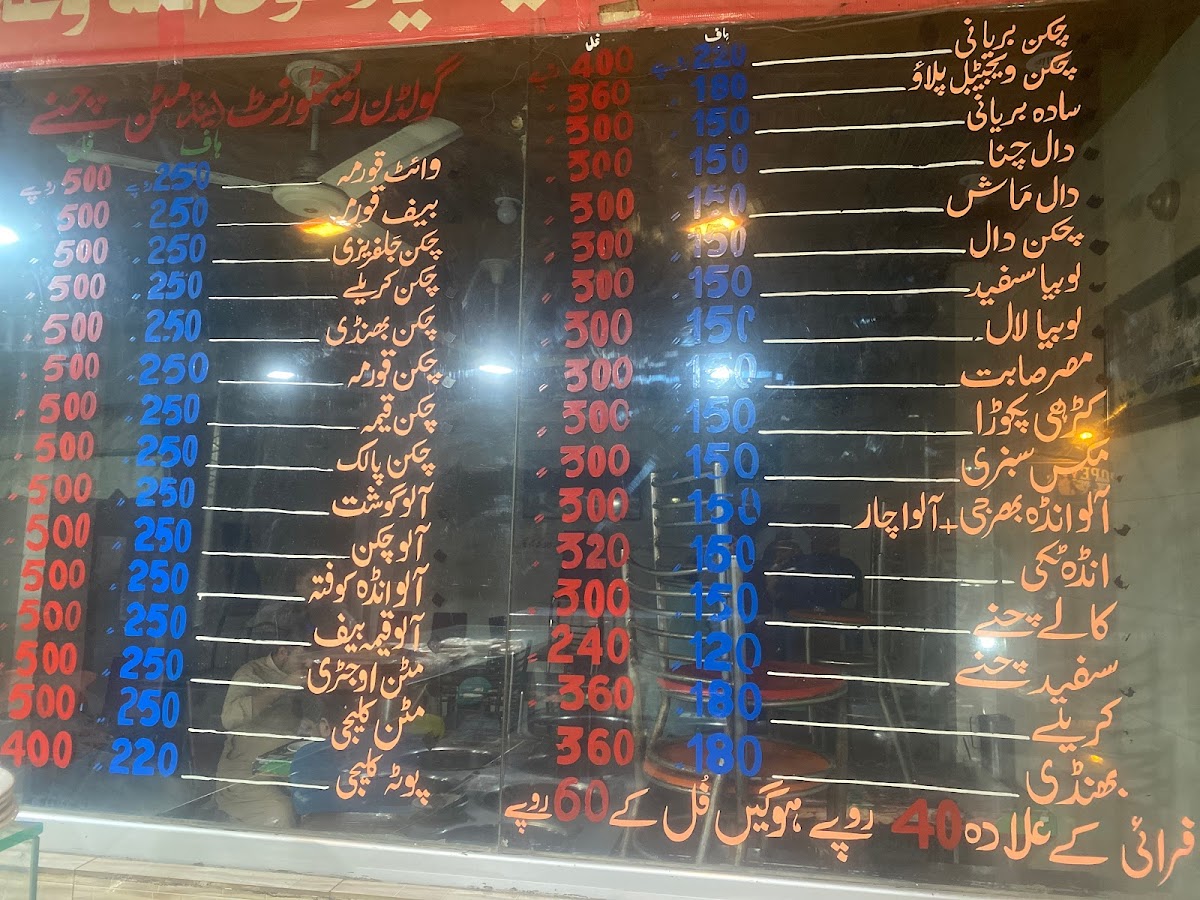 ہاف فل
چکن بریانی 220 روپے 400 روپے
چکن ویجیٹیبل پلاؤ 180 360
سادہ بریانی 150 300
دال چنا 150 300
دال ماش 150 300
چکن دال 150 300
لوبیا سفید 150 300
لوبیا لال 150 300
مصر صابت 150 300
کڑھی پکوڑا 150 300
مکس سبزی 150 300
آلو انڈہ بھرجی+آلو اچار 150 300
انڈہ ٹکی 160 320
کالے چنے 150 300
سفید چنے 120 240
کریلے 180 360
بھنڈی 180 360
فرائی کے علادہ 40 روپے ہوگیں فُل کے 60 روپے
گولڈن ریسٹورنٹ اینڈ مٹن چنے
ہاف فل
وائٹ قورمہ 250 روپے 500 روپے
بیف قورمہ 250 500
چکن جلفریزی 250 500
چکن کریلے 250 500
چکن بھنڈی 250 500
چکن قورمہ 250 500
چکن قیمہ 250 500
چکن پالک 250 500
آلو گوشت 250 500
آلو چکن 250 500
آلو انڈہ کوفتہ 250 500
آلو قیمہ بیف 250 500
مٹن اوجڑی 250 500
مٹن کلیجی 250 500
پوٹہ کلیجی 220 400